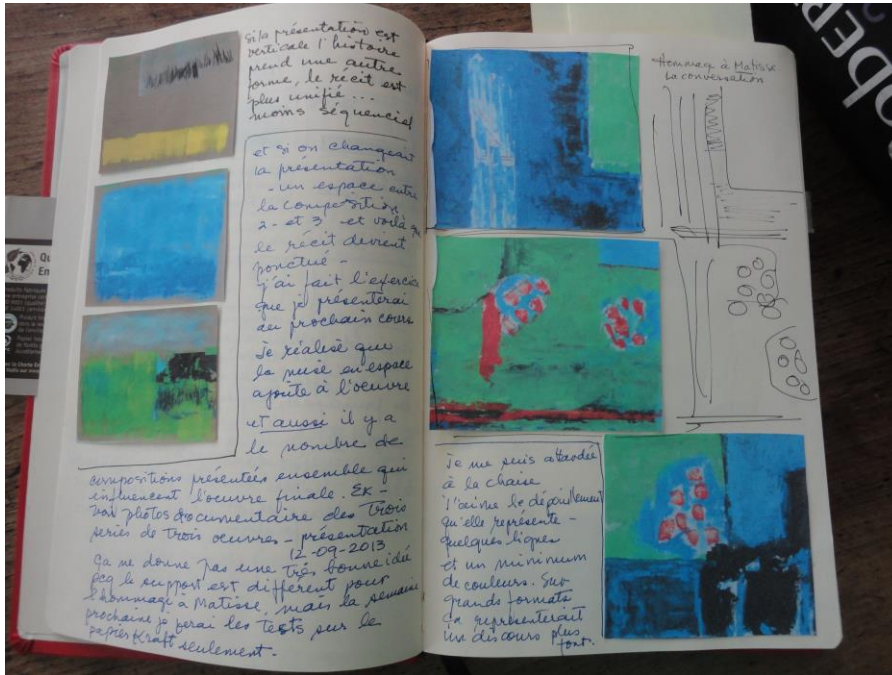 si la présentation est
verticale l'histoire
prend une autre
forme, le récit est
plus unifié...
moins séquenciel
et si on changeait
la présentation
- un espace entre
la composition
2 - et 3 - et voilà que
le récit devient
ponctué -
j'ai fait l'exercice
que je présenterai
au prochain cours
je réalise que
la mise en espace
ajoute à l'oeuvre
et aussi il y a
le nombre de
compositions présentées ensemble qui
influencent l'oeuvre finale. Ex -
voir photos documentaire des trois
series de trois oeuvres - présentation
12-09-2013
ça ne donne pas une très bonne idée
pcq le support est différent pour
l'hommage à Matisse, mais la semaine
prochaine je ferai les tests sur le
papier Kraft seulement -
Hommage à Matisse.
La conversation
je me suis attardée
à la chaise
j'aime le dépouillement
qu'elle représente -
quelques lignes
et un minimum
de couleurs. Sur
grands formats
ça représenterait
un discours plus
font.
Qu
En